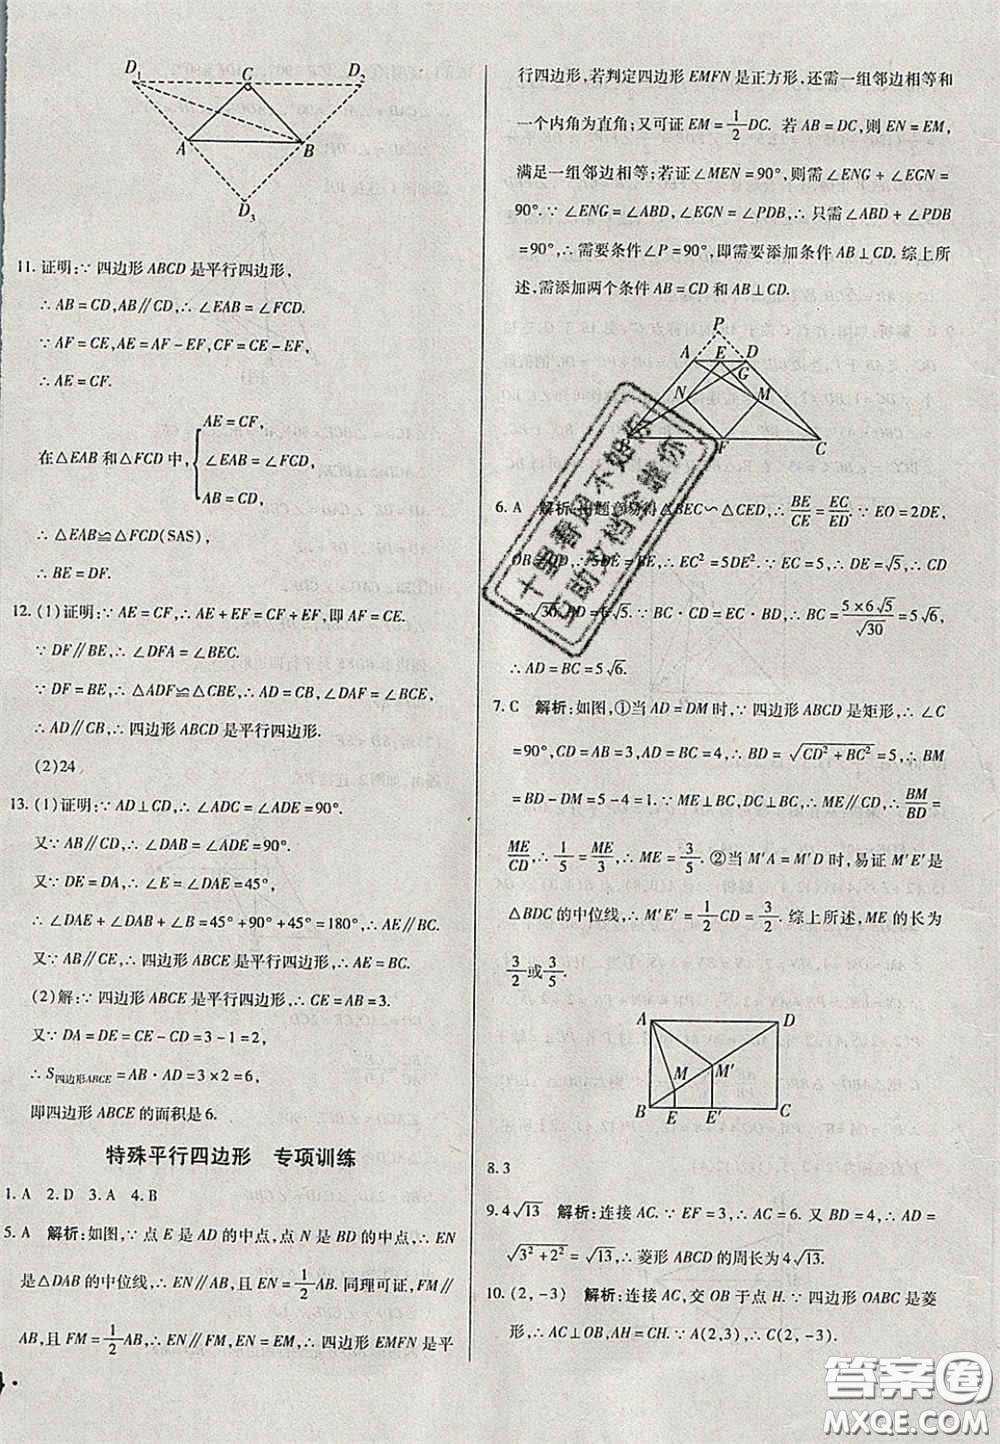 D₁ C D₂
A B
D₃
11. 证明:∵ 四边形 ABCD 是平行四边形,
∴ AB = CD, AB∥CD, ∴ ∠EAB = ∠FCD.
∵ AF = CE, AE = AF - EF, CF = CE - EF,
∴ AE = CF.
在△EAB 和△FCD 中, { AE = CF,
∠EAB = ∠FCD,
AB = CD,
∴ △EAB ≌ △FCD(SAS),
∴ BE = DF.
12. (1)证明:∵ AE = CF, ∴ AE + EF = CF + EF, 即 AF = CE.
∵ DF∥BE, ∴ ∠DFA = ∠BEC.
∵ DF = BE, ∴ △ADF≌△CBE, ∴ ∠DAF = ∠BCE,
∴ AD∥CB, ∴ 四边形 ABCD 是平行四边形.
(2)24
13. (1)证明:∵ AD⊥CD, ∴ ∠ADC = ∠ADE = 90°.
又∵ AB∥CD, ∴ ∠DAB = ∠ADE = 90°.
∵ DE = DA, ∴ ∠DAE = 45°,
∴ ∠DAE + ∠DAB + ∠C = 45° + 90° + 45° = 180°, ∴ AE∥BC.
又∵ AB∥CD, ∴ 四边形 ABCE 是平行四边形, ∴ AE = BC.
(2)解:∵ 四边形 ABCE 是平行四边形, ∴ CE = AB = 3.
又∵ DA = DE = CE - CD = 3 - 1 = 2,
∴ S四边形ABCE = AB · AD = 3 × 2 = 6,
即四边形 ABCE 的面积是 6.
特殊平行四边形 专项训练
1. A 2. D 3. A 4. B
5. A 解析:如图, ∵ 点 E 是 AD 的中点, 点 N 是 BD 的中点, ∴ EN
是△DAB 的中位线, ∴ EN∥AB, 且 EN = 1/2 AB. 同理可证, FM∥
AB, 且 FM = 1/2 AB, ∴ EN∥FM, EN = FM, ∴ 四边形 EMFN 是平
行四边形, 若判定四边形 EMFN 是正方形, 还需一组邻边相等和
一个内角为直角; 又可证 EM = 1/2 DC. 若 AB = DC, 则 EN = EM,
满足一组邻边相等; 若证 ∠MEN = 90°, 则需 ∠ENG + ∠EGN =
90°. ∵ ∠ENG = ∠ABD, ∠EGN = ∠PDB, ∴ 只需 ∠ABD + ∠PDB
= 90°, ∴ 需要条件 ∠P = 90°, 即需要添加条件 AB⊥CD. 综上所
述, 需添加两个条件 AB = CD 和 AB⊥CD.
P
A E D
G
N M
F C
6. A 解析:由题意易得△BEC∽△CED, ∴ BE/CE = EC/ED. ∵ EO = 2DE,
OB = OD, ∴ BE = 5DE, ∴ EC² = 5DE², ∴ EC = √5DE. ∵ CD
= √30, DE = √5. ∵ BC · CD = EC · BD, ∴ BC = 5×6√5/√30 = 5√6,
∴ AD = BC = 5√6.
7. C 解析:如图, ①当 AD = DM 时, ∵ 四边形 ABCD 是矩形, ∴ ∠C
= 90°, CD = AB = 3, AD = BC = 4, ∴ BD = √(CD² + BC²) = 5, ∴ BM
= BD - DM = 5 - 4 = 1. ∵ ME⊥BC, DC⊥BC, ∴ ME∥CD, ∴ BM/BD =
ME/CD, ∴ 1/5 = ME/3, ∴ ME = 3/5. ②当 M′A = M′D 时, 易证 M′E′是
△BDC 的中位线, ∴ M′E′ = 1/2 CD = 3/2. 综上所述, ME 的长为
3/2 或 3/5.
A D
M M′
B E E′ C
8. 3
9. 4√13 解析:连接 AC. ∵ EF = 3, ∴ AC = 6. 又∵ BD = 4, ∴ AD =
√(3² + 2²) = √13, ∴ 菱形 ABCD 的周长为 4√13.
10. (2, -3) 解析:连接 AC, 交 OB 于点 H. ∵ 四边形 OABC 是菱
形, ∴ AC⊥OB, AH = CH. ∵ A(2,3), ∴ C(2, -3).
十里春风不如你
互助文档全靠你
答案圈
MXQE.COM